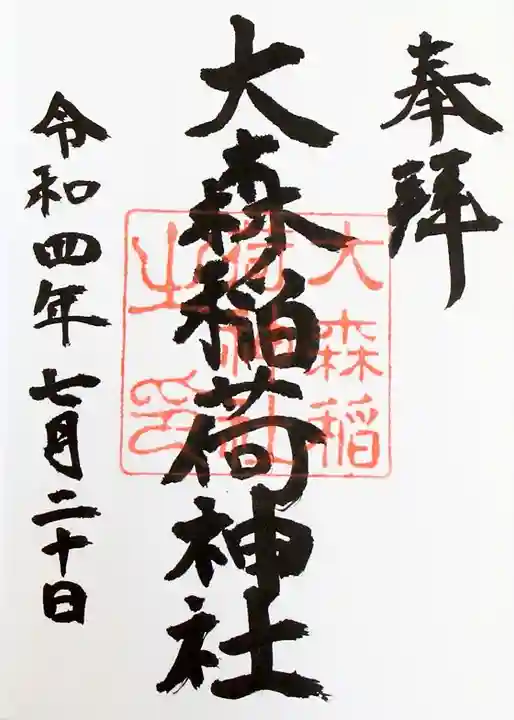 奉拝
大森稲荷神社
大森稲
荷神社
之印
令和四年七月二十日